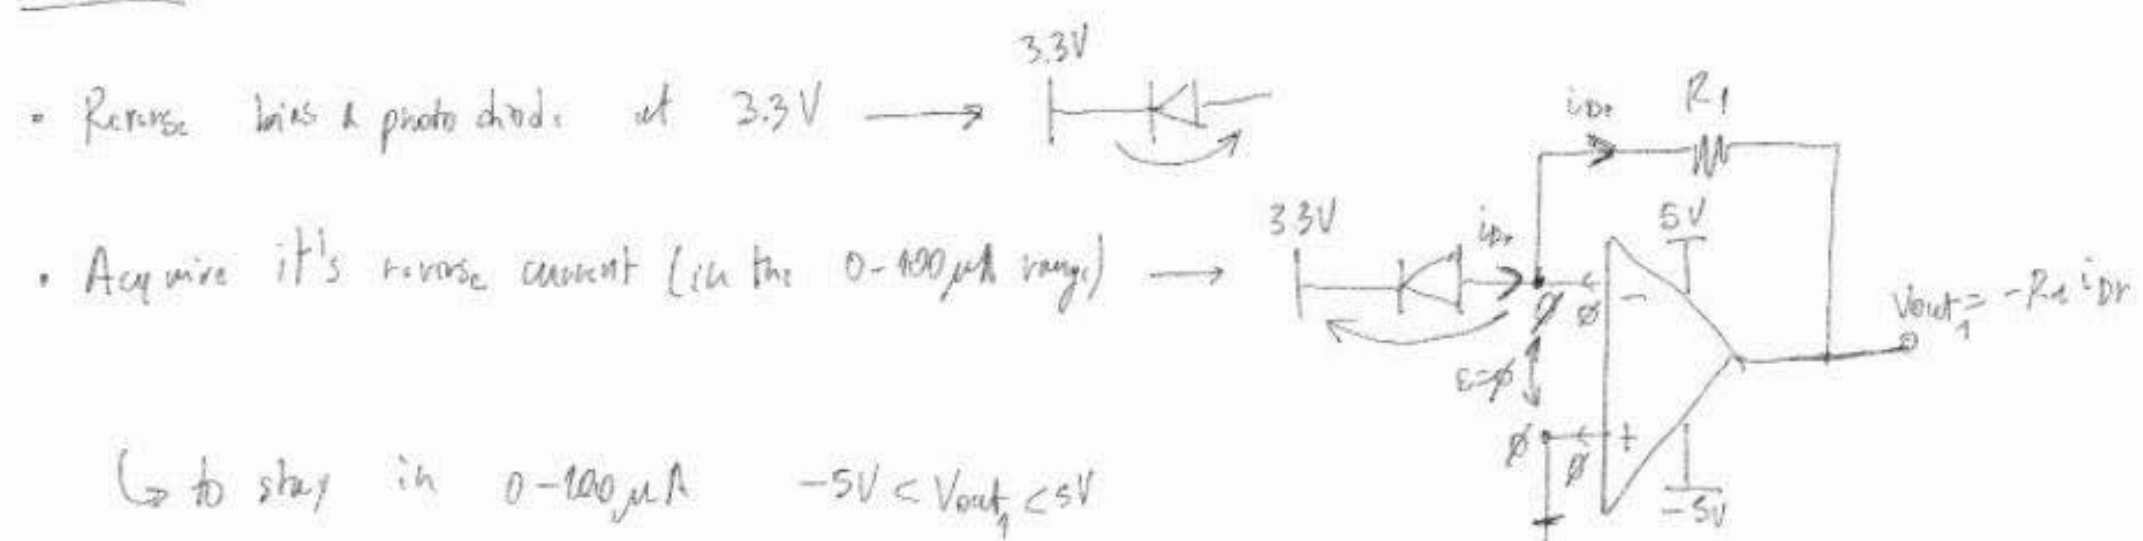 • Reverse bias a photo diode at 3.3V →
3.3V
• Acquire it's reverse current (in the 0-100µA range) →
3.3V
iDr
iDr
R1
5V
-
ε=ø
ø
ø
ø
ø
+
-5V
Vout1 = -R1 iDr
↳ to stay in 0-100µA -5V < Vout1 < 5V